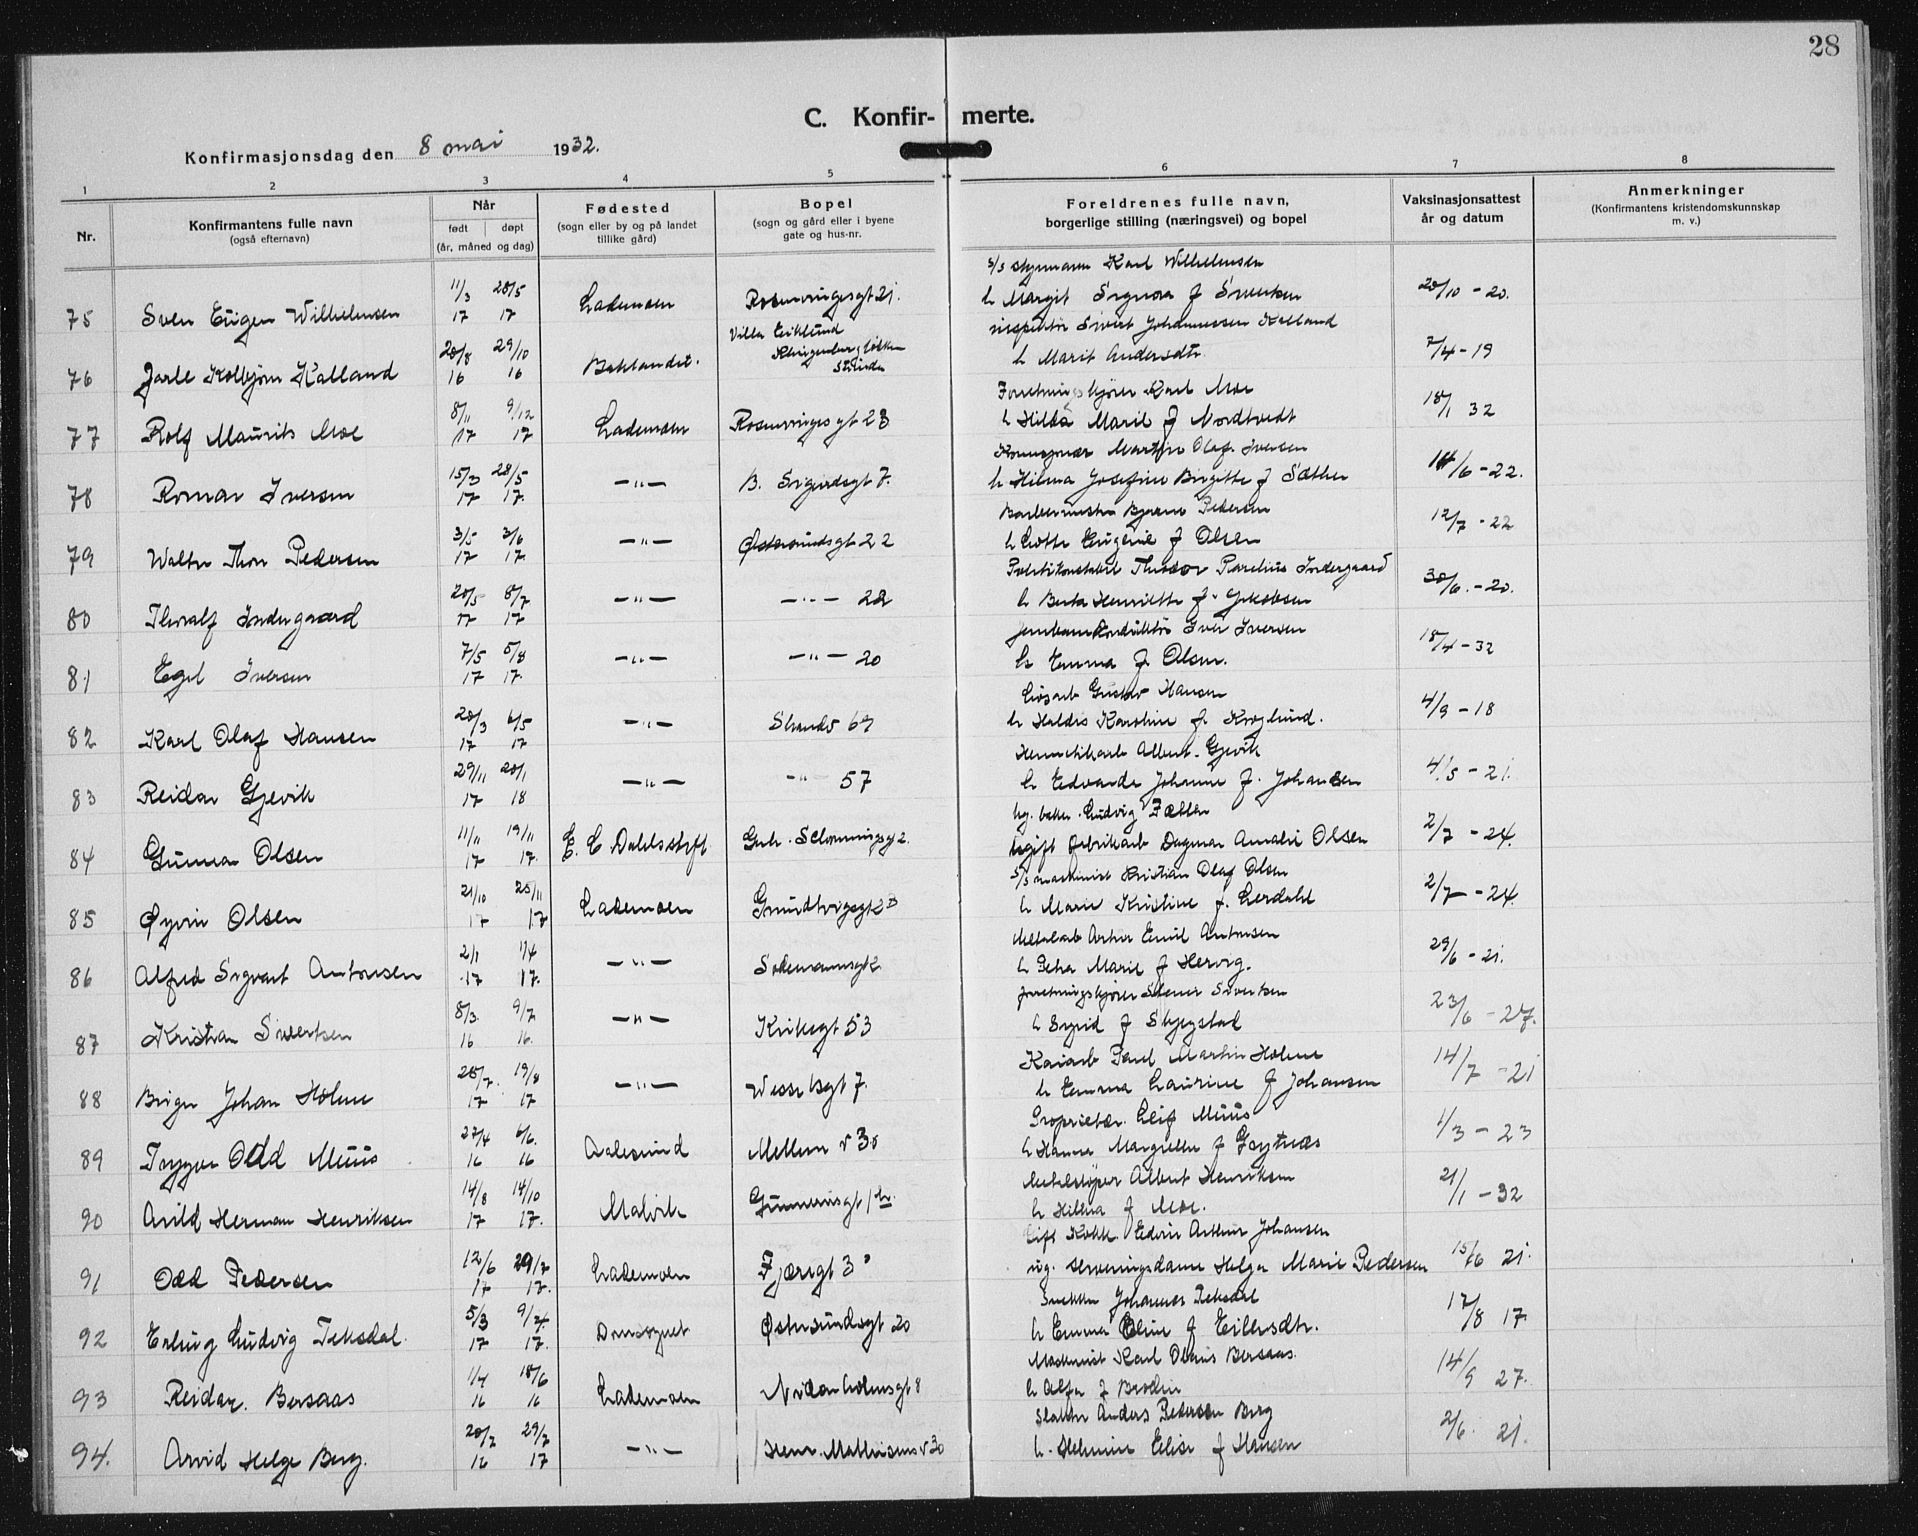 28
C. Konfir- merte.
Konfirmasjonsdag den 8 mai 1932.
1 2 3 4 5 6 7 8
Nr. Konfirmantens fulle navn (også efternavn) Når født døpt (år, måned og dag) Fødested (sogn eller by og på landet tillike gård) Bopel (sogn og gård eller i byene gate og hus-nr. Foreldrenes fulle navn, borgerlige stilling (næringsvei) og bopel Vaksinasjonsattest år og datum Anmerkninger (Konfirmantens kristendomskunnskap m. v.)
s/s styrmann Karl Wilhelmsen
75 Sven Eugen Wilhelmsen 11/3 17 28/5 17 Lademoen Rosenvingesgt 21. h Margit Signora f Sivertsen 20/10 - 20.
inspektør Sivert Johannessen Kalland
76 Jarle Kolbjørn Kalland 28/8 16 29/10 16 Baklandet. Villa Eiklund Klingenbergløkken Strinda h Marit Andersdtr. 7/4 - 19
Forretningsfører Karl Moe
77 Rolf Maurits Moe 8/11 17 9/12 17 Lademoen Rosenvinges gt 23 h Hilda Marie f Nordtvedt 18/1 32
Martin Olaf Iversen
78 Romar Iversen 15/3 17 28/5 17. —"— B. Sigurdsgt 7. h Hilma Josefine Birgitte f Sæther 14/6 - 22.
Barbermester Bjarne Pedersen
79 Walter Thor Pedersen 3/5 17 3/6 17. —"— Østersundsgt 22 h Lotte Eugenie f Olsen 12/7 - 22
Politikonstabel Theodor Parelius Indergaard
80 Thoralf Indergaard 20/5 17 8/7 17 —"— —"— 22 h Berta Henriette f. Jakobsen 30/6. - 20.
Jernbanekonduktør Iver Iversen
81 Egil Iversen 7/5 17 5/8 17. —"— —"— 20 h Emma f. Olsen. 18/4 - 32
Løsarb Gustav Hansen
82 Karl Olaf Hansen 28/3 17 6/5 17 —"— Strandv 69 h Haldis Karoline f. Kroglund. 4/9 - 18
Hermetikarb Albert Gjevik
83 Reidar Gjevik 29/11 17 20/1 18 —"— —"— 57 h Edvarda Johanne f. Johansen 4/5 - 21.
ug. baker Ludvig Fætten
84 Gunnar Olsen 11/11 17 19/11 17. E. C Dahls stift Gerh. Schønningsg 2. ugift fabrikarb Dagmar Amalie Olsen 2/7 - 24.
s/s maskinist Kristian Olaf Olsen
85 Øyvin Olsen 21/10 17 25/11 17 Lademoen Grundtvigsgt 23 h Marie Kristine f. Lerdahl 2/7 - 24
Metalarb Artur Emil Antonsen
86 Alfred Sigvart Antonsen 2/1 17 1/4 17. —"— Sodemannsgt 2 h Petra Marie f Hervig. 29/6 - 21.
forretningsfører Stener Sivertsen
87 Kristian Sivertsen 8/3. 16 9/7 16. —"— Kirkegt 53 h Sigrid f Skjegstad 23/6 - 27.
Kaiarb Paul Martin Holme
88 Birger Johan Holme 28/7. 17 19/8 17 —"— Wesselsgt 7. h Emma Laurine f Johansen 14/7 - 21
Proprietær. Leif Muus
89 Trygve Odd Muus 27/4 16 6/6. 16 Aalesund Mellemv 30 h Hanna Margrethe f Grytnæs 1/3 - 23
Albert Henriksen
90 Arild Herman Henriksen 14/8 17 14/10 17. Malvik Gunnerusgt 1 b. h Hilma f Moe. 21/1 - 32
Gift Kokk Edvin Arthur Johansen
91 Odd Pedersen 12/6 17 29/7 17. Lademoen Fjæregt 3 ug. serveringsdame Helga Marie Pedersen 15/6 21.
Snekker Johannes Teksdal
92 Erling Ludvig Teksdal. 5/3 17 9/4. 17. Domsognet Østersundsgt 20 h Emma Eline f Eilersdtr. 17/8 17.
Maskinist Karl Olaus Bersaas.
93 Reidar. Bersaas 1/4 16 18/6 16 Lademoen Nidarholmsgt 8 h Alfa f Brodin 14/9 27.
Slakter Anders Pedersen Berg
94. Arvid Helge Berg. 20/7 16 29/7 17 —"— Henr. Mathisens v 30 h. Helmine Elise f Hansen 2/6. 21.